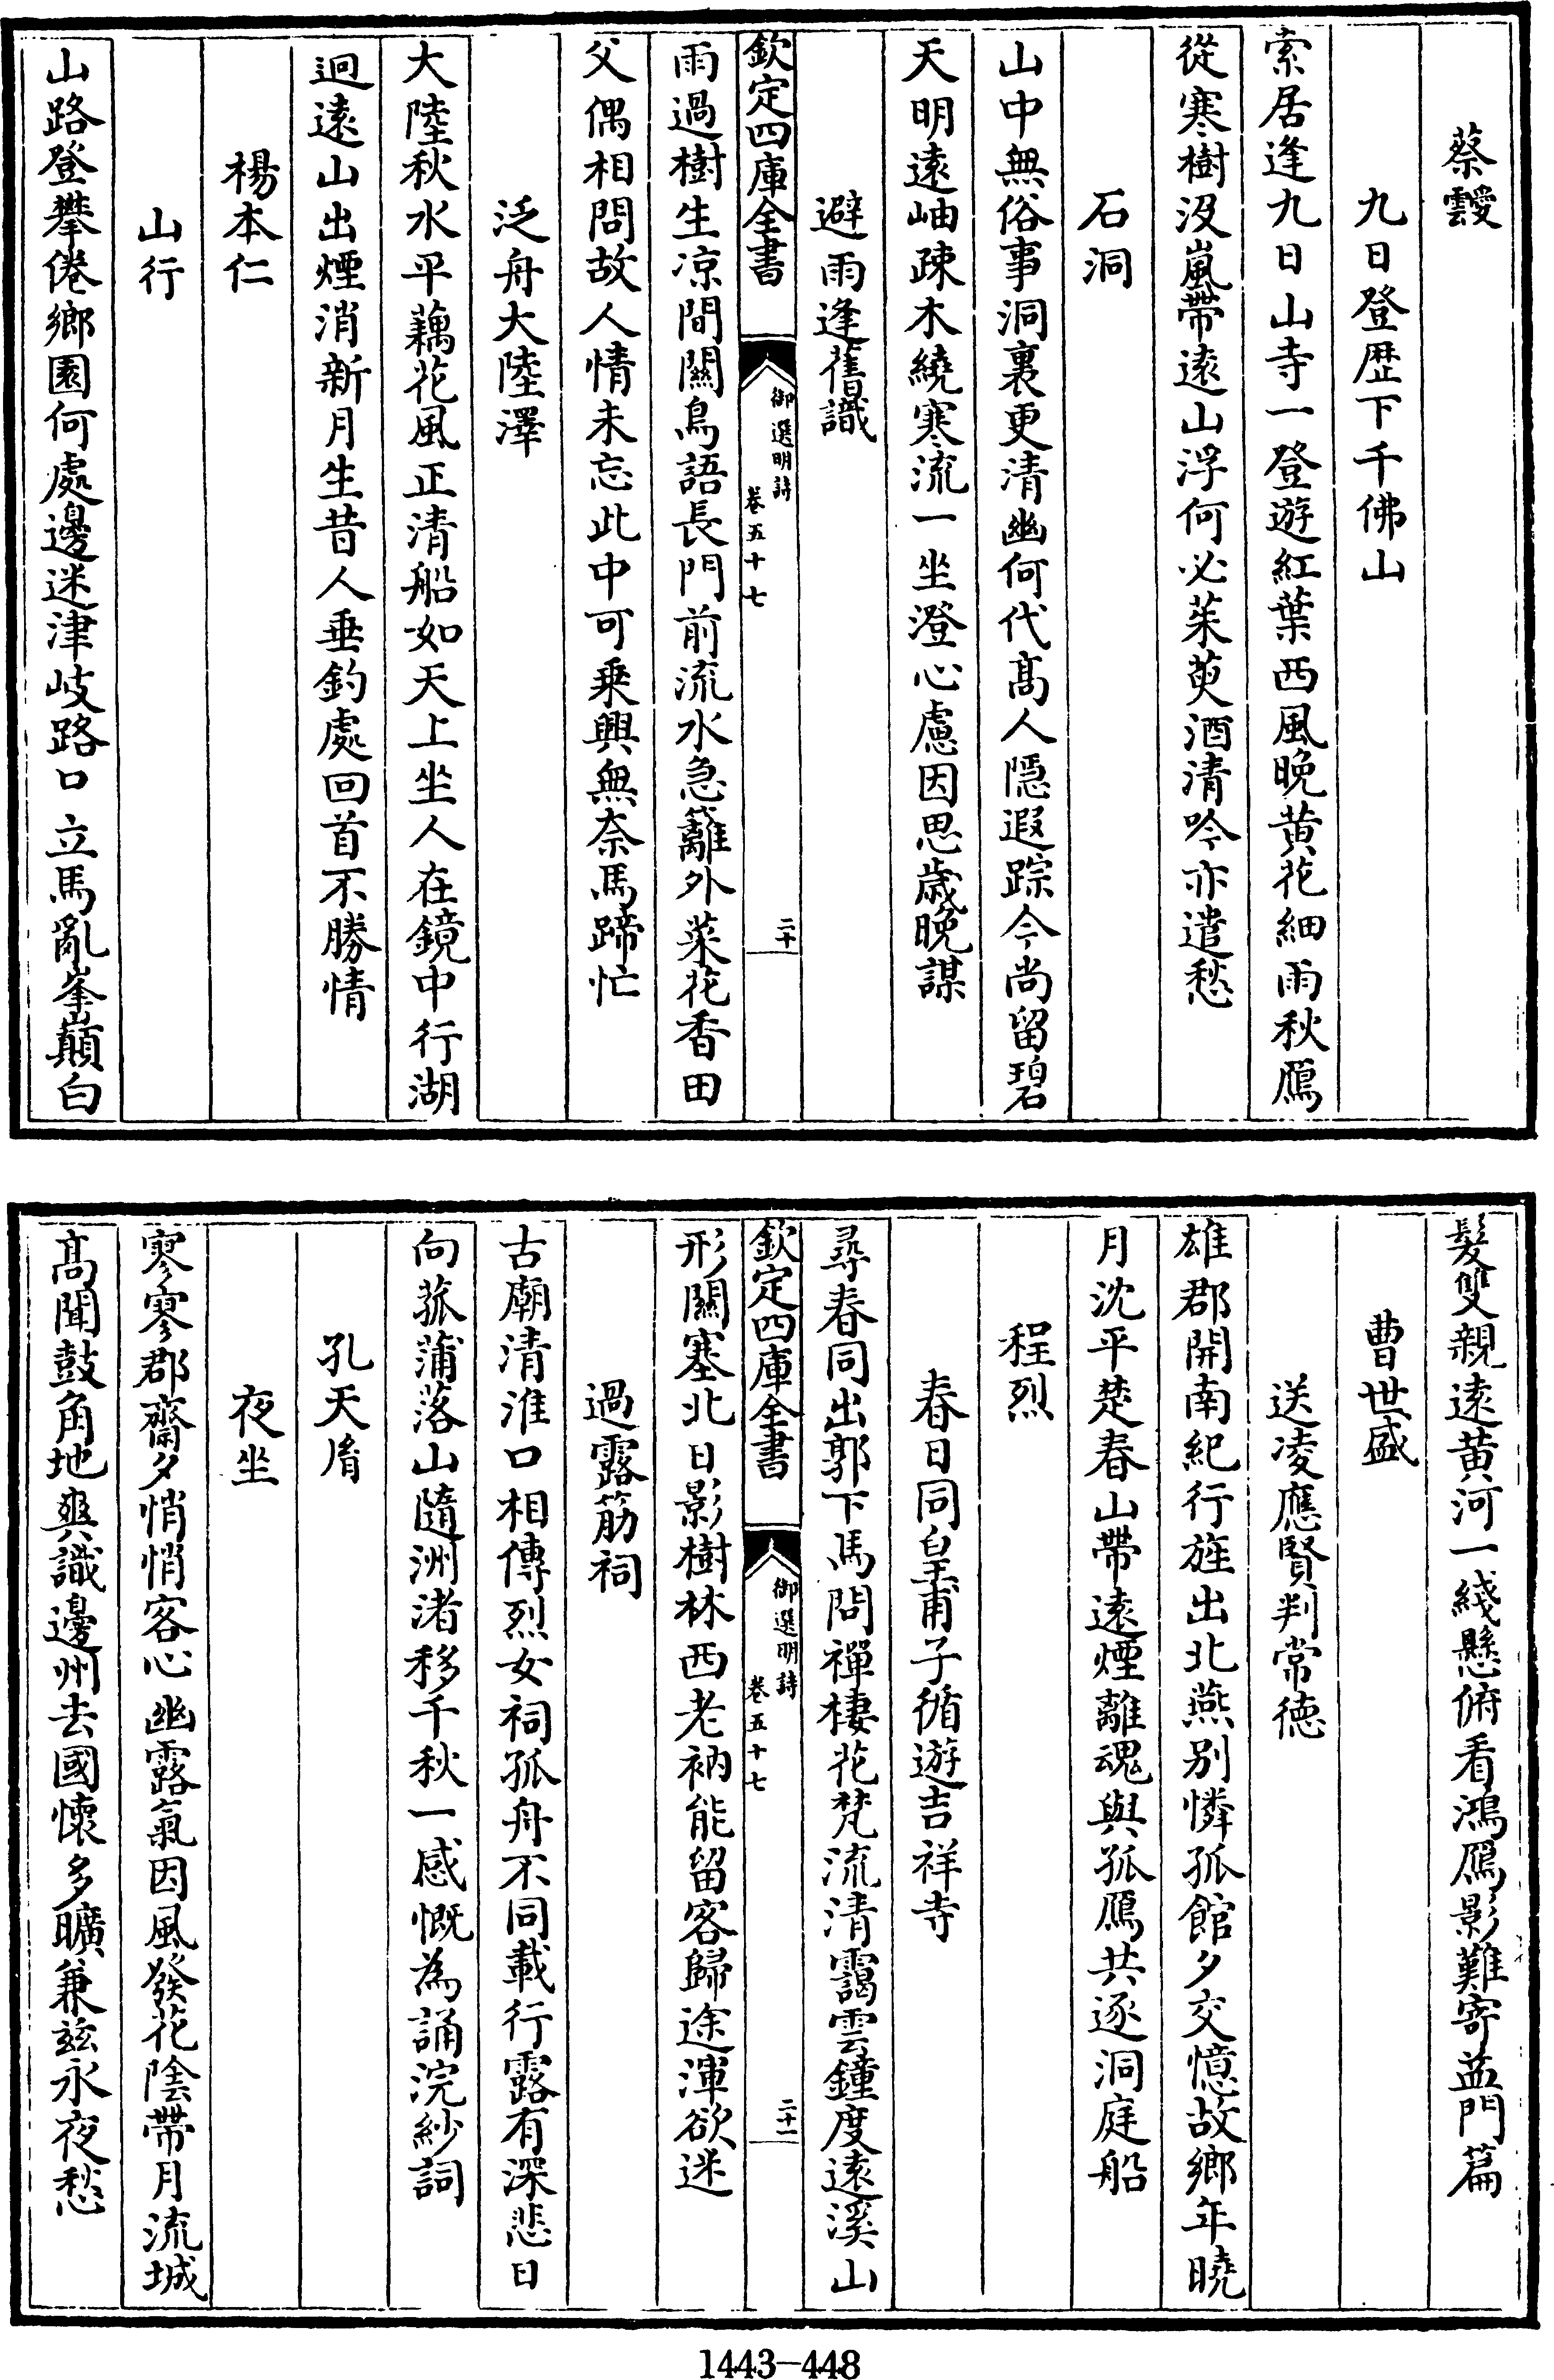 蔡靉
九日登歴下千佛山
索居逢九日山寺一登遊紅葉西風晩黄花細雨秋鴈
從寒樹没嵐帶遠山浮何必茱萸酒清吟亦遣愁
石洞
山中無俗事洞裏更清幽何代髙人隱遐踪今尚留碧
天明遠岫疎木繞寒流一坐澄心慮因思歳晩謀
避雨逢舊識
欽定四庫全書
御選明詩
卷五十七
二十
雨過樹生凉間關鳥語長門前流水急籬外菜花香田
父偶相問故人情未忘此中可乗興無奈馬蹄忙
泛舟大陸澤
大陸秋水平藕花風正清船如天上坐人在鏡中行湖
迥遠山出煙消新月生昔人垂釣處回首不勝情
楊本仁
山行
山路登攀倦鄉園何處邊迷津岐路口立馬亂峯巔白
髮雙親遠黄河一綫懸俯看鴻鴈影難寄蓝門篇
曹世盛
送凌應賢判常徳
雄郡開南紀行旌出北燕别憐孤館夕交憶故鄉年曉
月沈平楚春山帶遠煙離魂與孤鴈共逐洞庭船
程烈
春日同皇甫子循遊吉祥寺
尋春同出郭下馬問禪棲花梵流清靄雲鐘度遠溪山
欽定四庫全書
御選明詩
卷五十七
二十一
形關塞北日影樹林西老衲能留客歸途渾欲迷
過露筋祠
古廟清淮口相傳烈女祠孤舟不同載行露有深悲日
向菰蒲落山隨洲渚移千秋一感慨為誦浣紗詞
孔天胤
夜坐
寥寥郡齋夕悄悄客心幽露氣因風發花陰帶月流城
髙聞鼓角地爽識邊州去國懐多曠兼兹永夜愁
1443-448